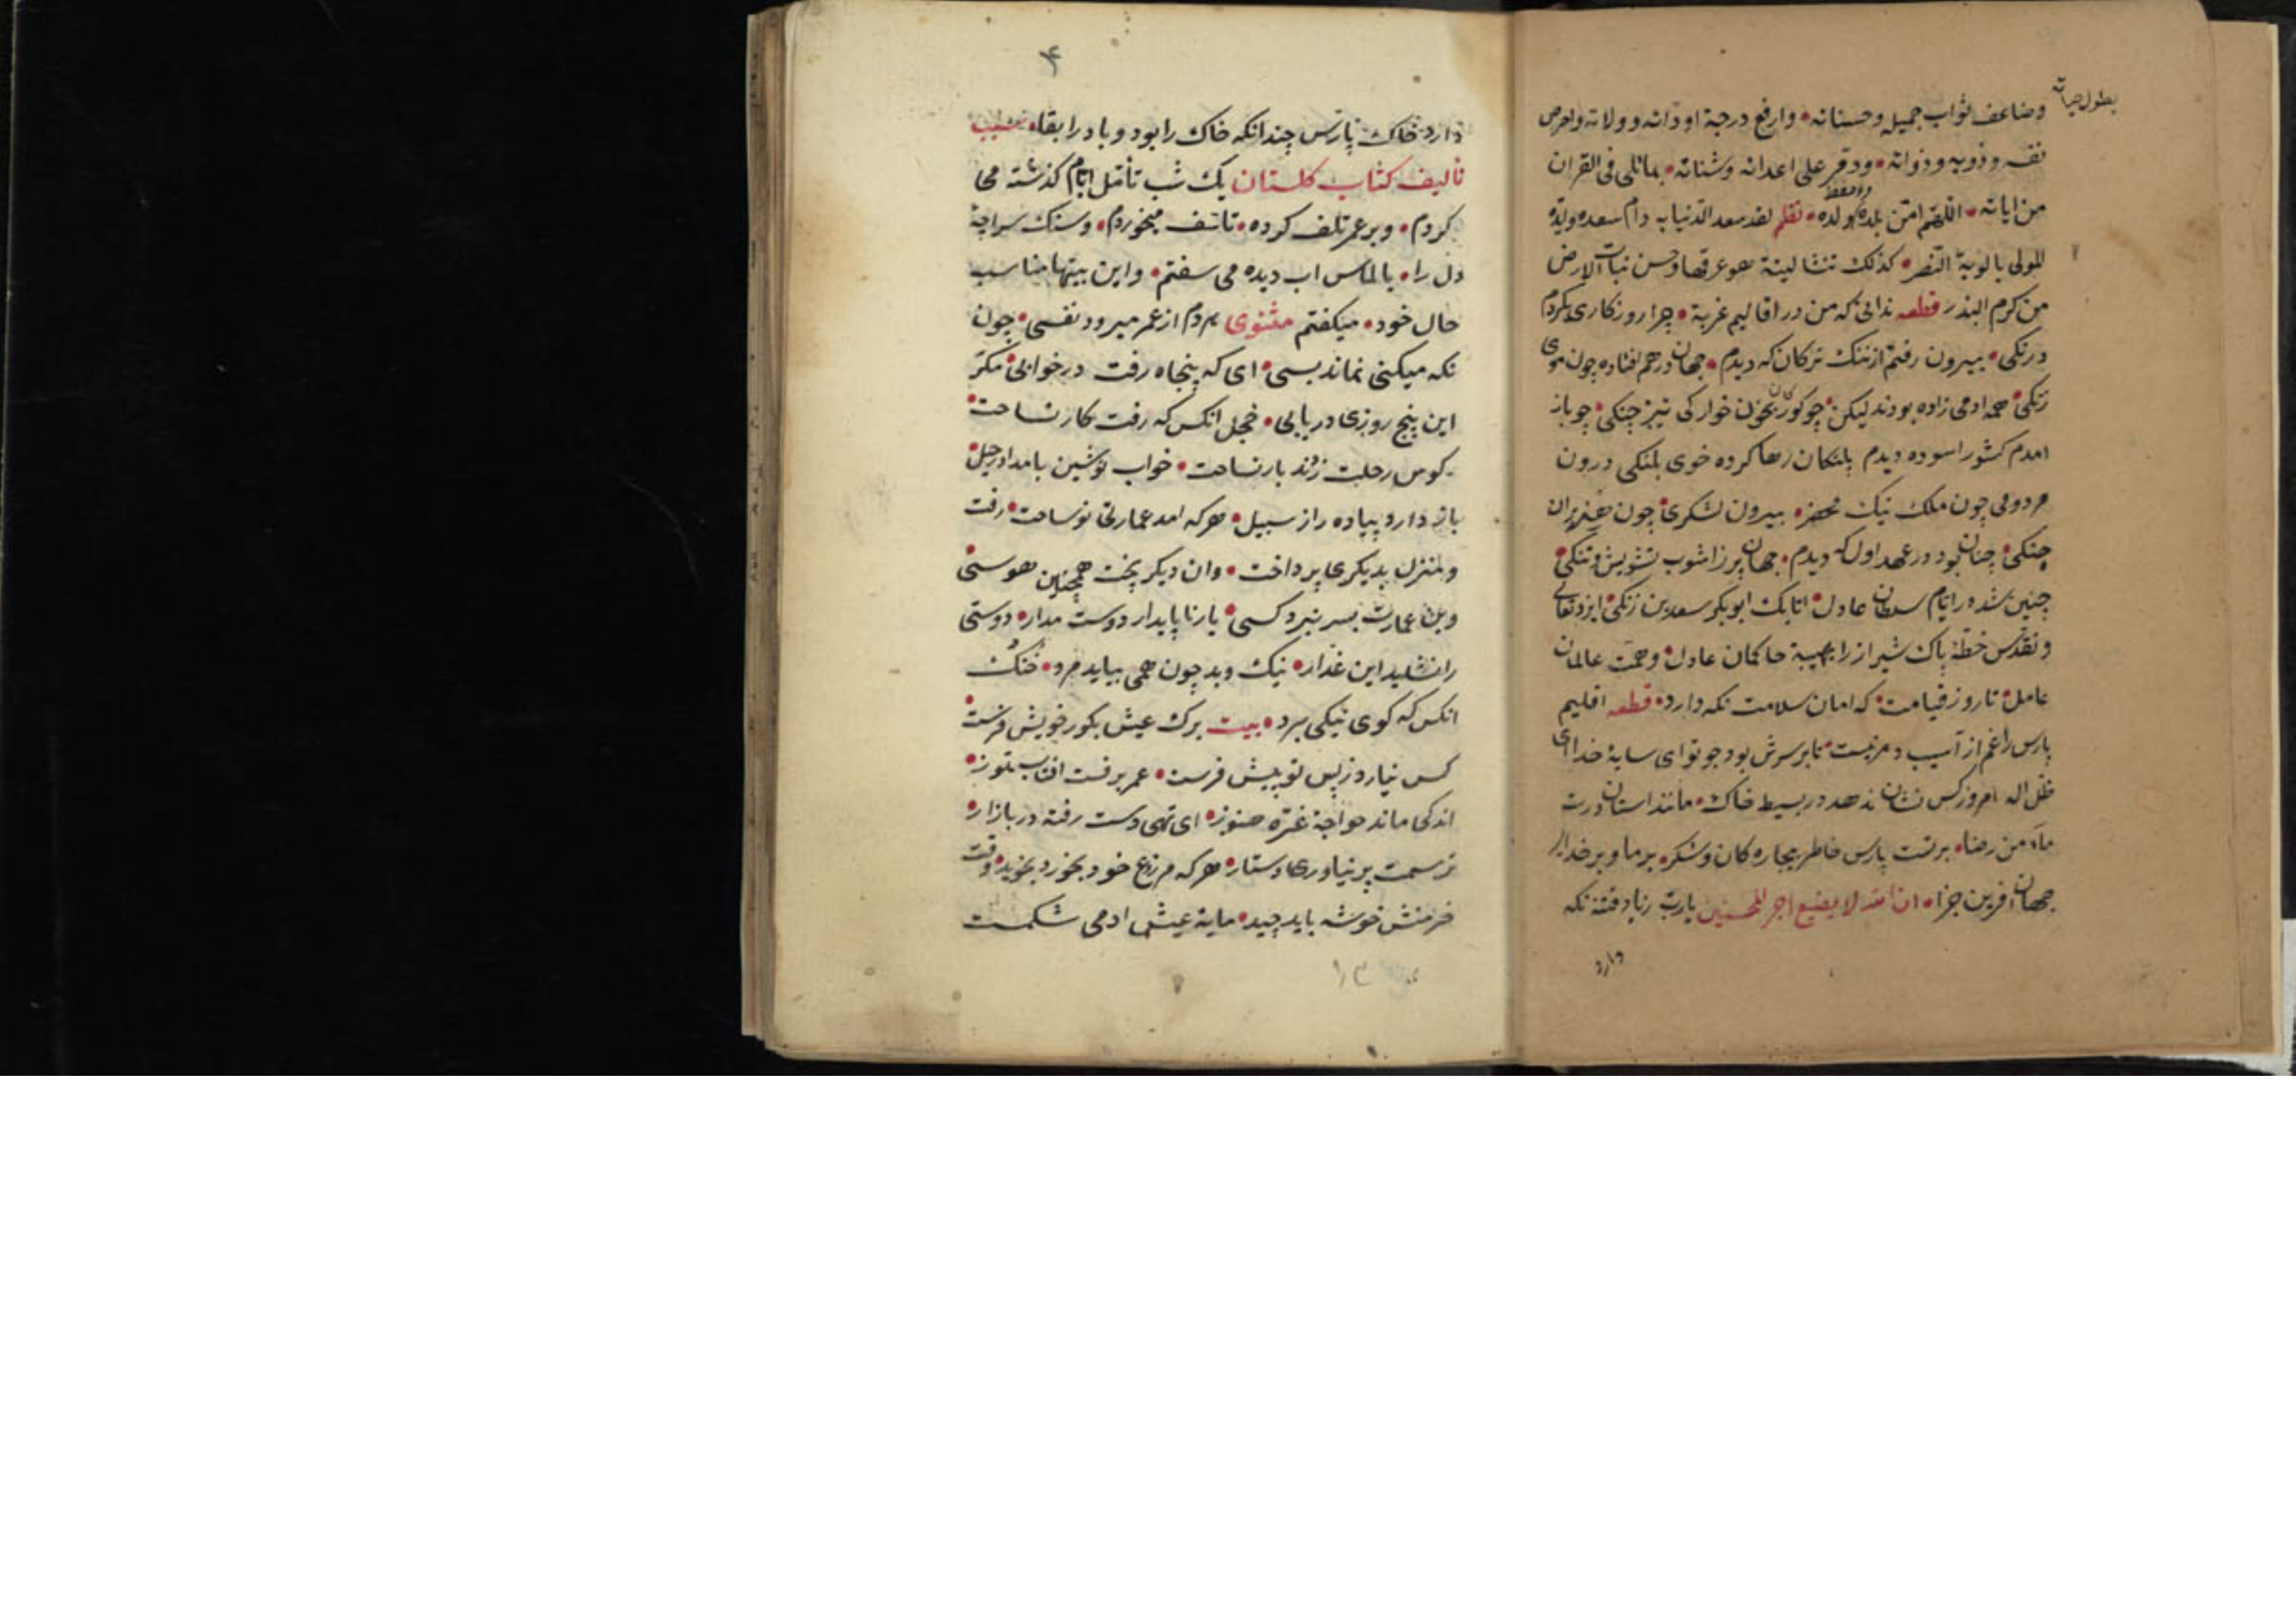 بطول حیاته
وضاعف ثواب جمیله وحسناته • وارفع درجة اودائه وولاته
وذویه وذواته • ودمر علی اعدائه وشناته • بماتلی فی القران
من ایاته • اللهم امن بلده واحفظ ولده • نظم لقد سعد الدنیا به دام سعده وایده
المولی بالویة النصر • کذلک تنشا لینة هو عرقها وحسن نبات الارض
من کرم البذر قطعه ندانی که من در اقالیم غربة • چرا روزکاری بکردم
درنکی • بیرون رفتم از تنک ترکان که دیدم • جهان درهم فتاده چون موی
زنکی • همه ادمی زاده بودند لیکن • چو کورکان بخون خوارکی تیز چنکی • چو باز
امدم کشور اسوده دیدم پلنکان رها کرده خوی پلنکی درون
مردومی چون ملک نیک محضر • بیرون لشکری چون هژبران
جنکی • چنان بود در عهد اول که دیدم • جهان پر زاشوب تشویش وتنکی •
چنین شد در ایام سلطان عادل • اتابک ابوبکر سعد بن زنکی • ایزد تعالی
وتقدس خطه پاک شیراز را بهیبة حاکمان عادل • وهمت عالمان
عامل • تا روز قیامت • که امان سلامت نکه دارد • قطعه اقلیم
پارس را غم از آسیب دهر نیست • تا برسرش بود چو توای سایهٔ خدا
امروز کس نشان ندهد در بسیط خاک • مانند استان درت
مامن رضا • برتست پارس خاطر بیچاره کان وشکر • بر ما وبر خدای
جهان افرین جزا • ان الله لا یضیع اجر المحسنین یارب زباد فتنه نکه
دارد
۴
دارد خاک پارس چندانکه خاک را بود وباد را بقا • سبب
تالیف کتاب کلستان یک شب تأمل ایام کذشته می
کردم • وبر عمر تلف کرده • تاسف میخوردم • وسنک سراچهٔ
دل را • بالماس اب دیده می سفتم • واین بیتها مناسب
حال خود • میکفتم مثنوی هردم از عمر میرود نفسی • چون
نکه میکنی نماند بسی • ای که پنجاه رفت درخوابی • مکر
این پنج روزی دریابی • خجل انکس که رفت کار نساخت •
کوس رحلت زدند بار نساخت • خواب نوشین بامداد رحیل •
باز دارد پیاده را ز سبیل • هرکه امد عمارتی نو ساخت • رفت
ومنزل بدیکری پرداخت • وان دیکر پخت همچنین هوسی •
وین عمارت بسر نبرد کسی • یار ناپایدار دوست مدار • دوستی
را نشاید این غدار • نیک وبد چون همی بباید مرد • خنک
انکس که کوی نیکی برد • بیت برک عیش بکور خویش فرست •
کس نیارد زپس تو پیش فرست • عمر برفست افتاب تموز •
اندکی ماند خواجه غره هنوز • ای تهی دست رفته در بازار •
ترسمت پر نیاوری دستار • هرکه مزرع خود بخورد بخوید • وقت
خرمنش خوشه باید چید • مایهٔ عیش ادمی شکمست
۱۳